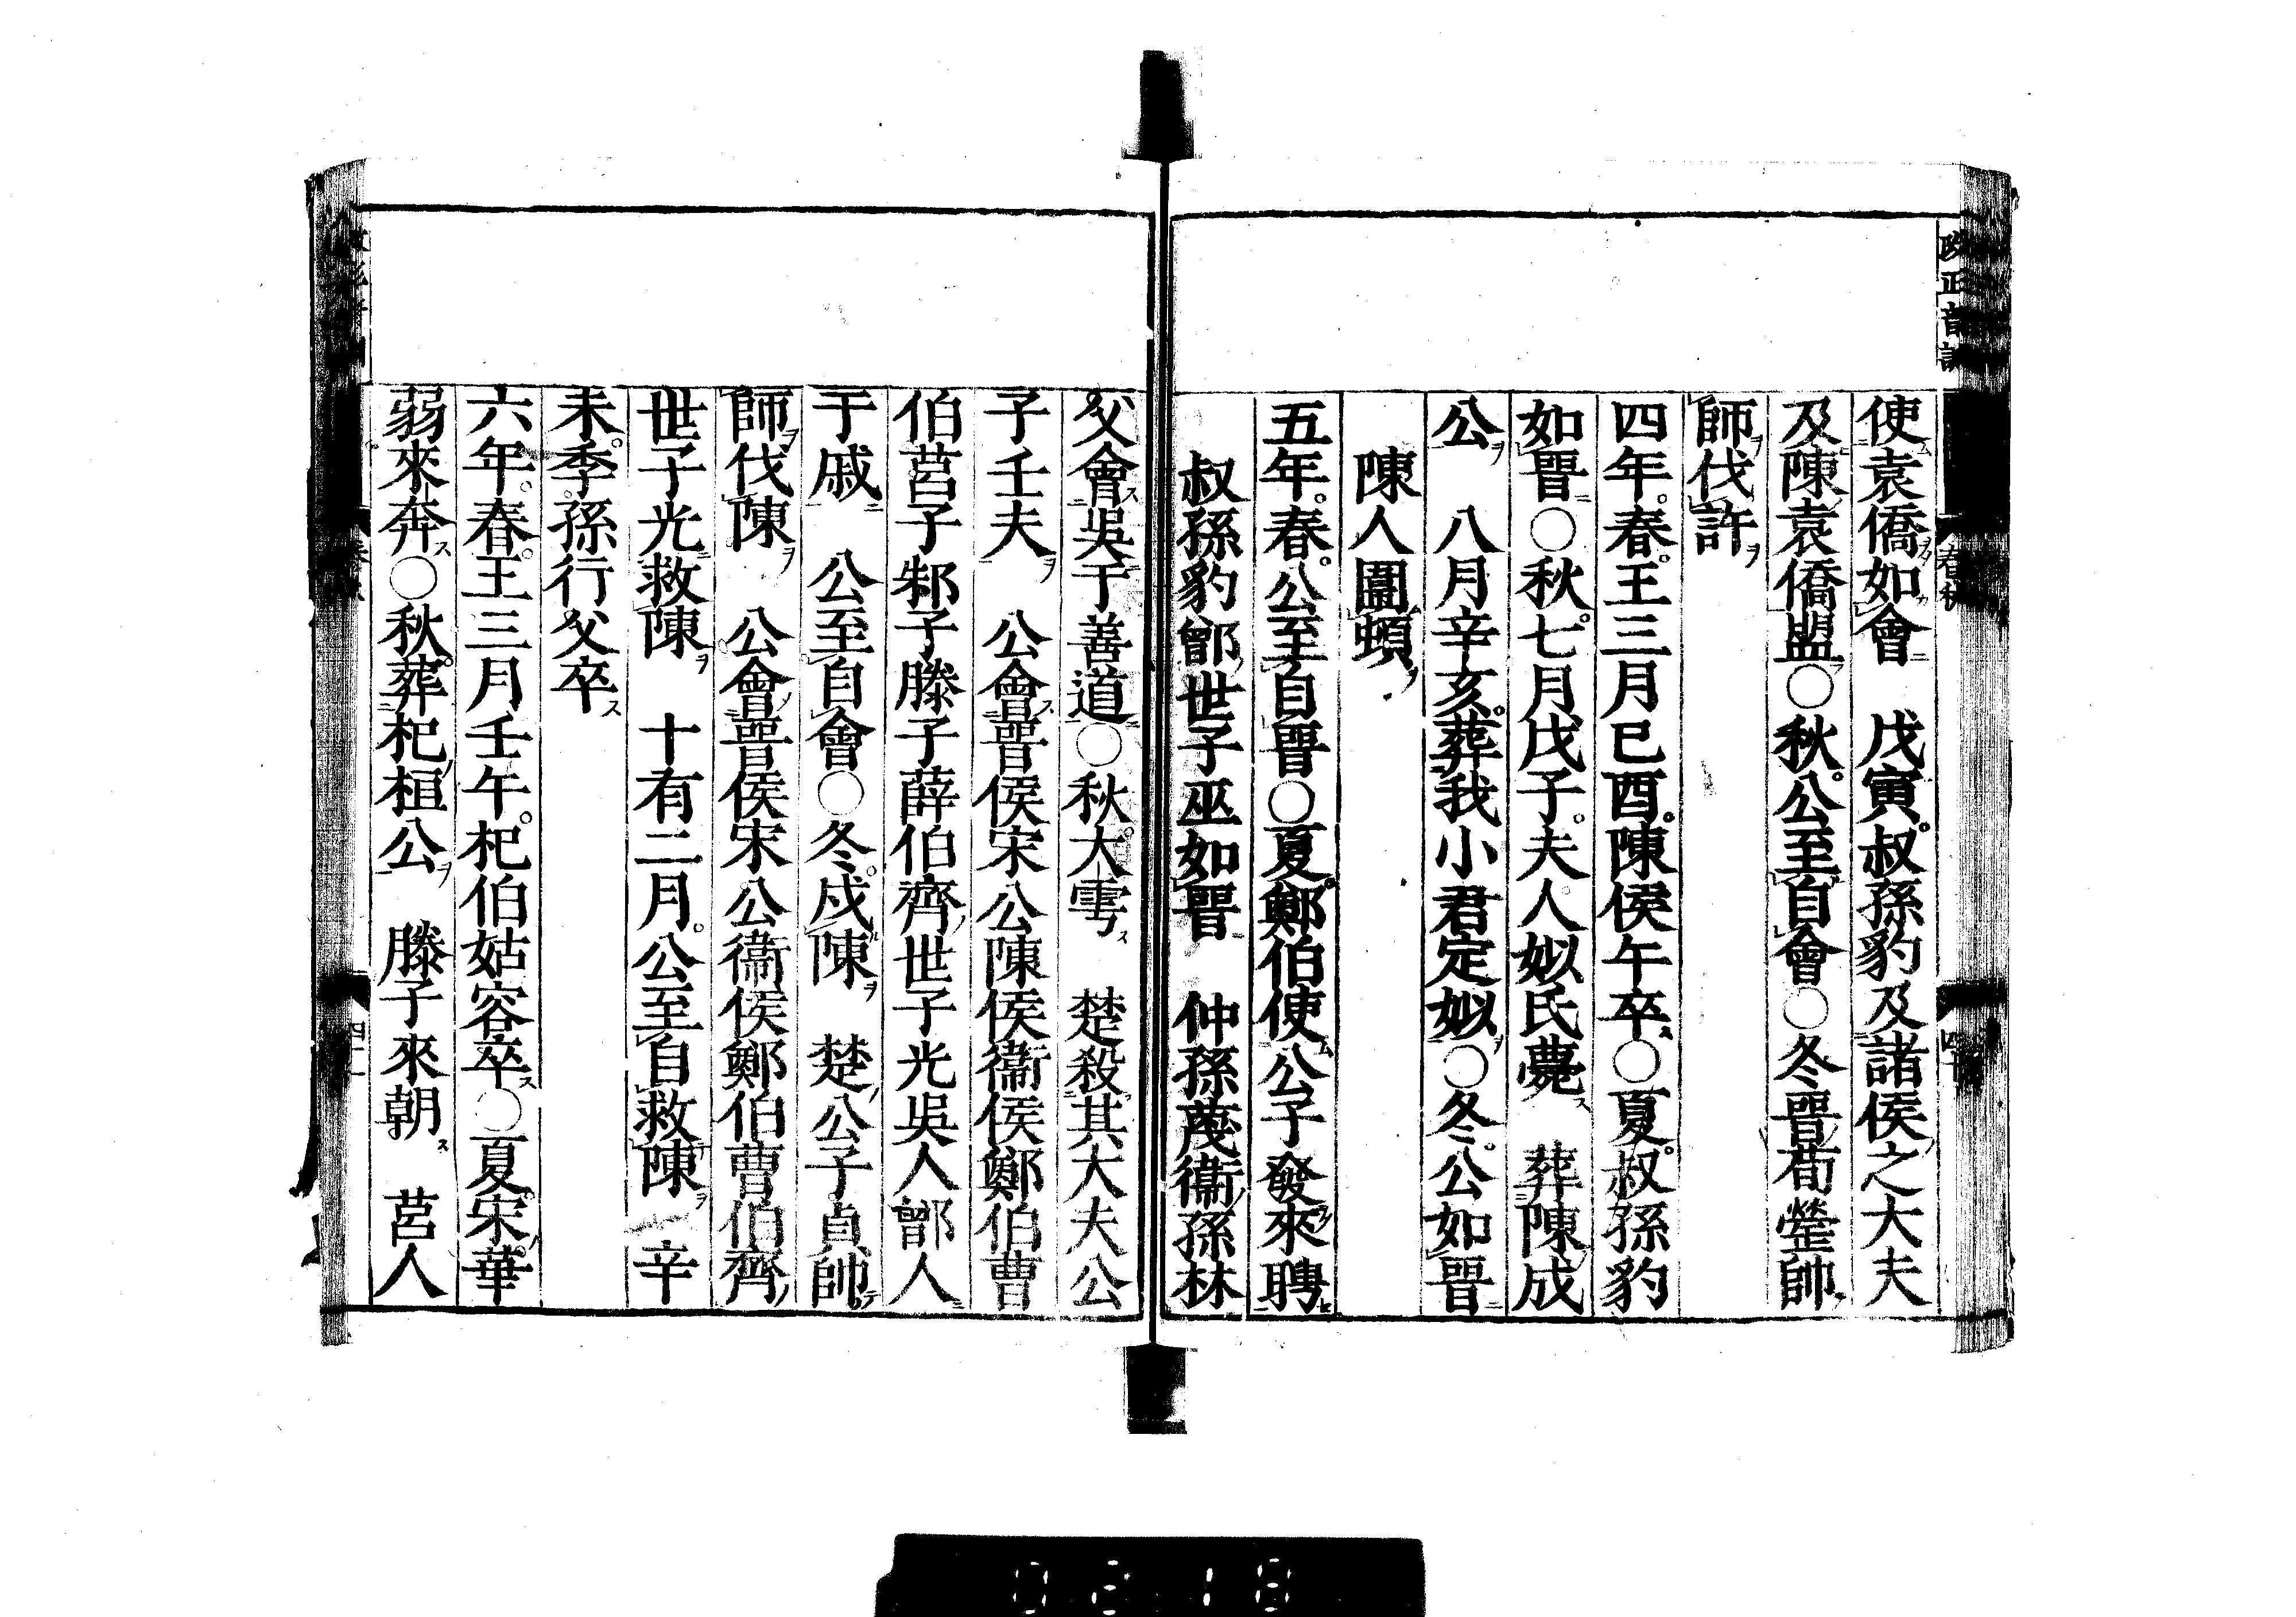 改正音訓
春秋
使袁僑如會　戊寅叔孫豹及諸侯之大夫
及陳袁僑盟○秋公至自會○冬晉荀罃帥
師伐許
四年春王三月已酉陳侯午卒○夏叔孫豹
如晉○秋七月戊子夫人姒氏薨　葬陳成
公　八月辛亥葬我小君定姒○冬公如晉
陳人圍頓
五年春公至自晉○夏鄭伯使公子發來聘
叔孫豹鄫世子巫如晉　仲孫蔑衞孫林
父會吳于善道○秋大雩　楚殺其大夫公
子壬夫　公會晉侯宋公陳侯衞侯鄭伯曹
伯莒子邾子滕子薛伯齊世子光吳人鄫人
于戚　公至自會○冬戍陳　楚公子貞帥
師伐陳　公會晉侯宋公衞侯鄭伯曹伯齊
世子光救陳　十有二月公至自救陳　辛
未季孫行父卒
六年春王三月壬午杞伯姑容卒○夏宋華
弱來奔○秋葬杞桓公　滕子來朝　莒人